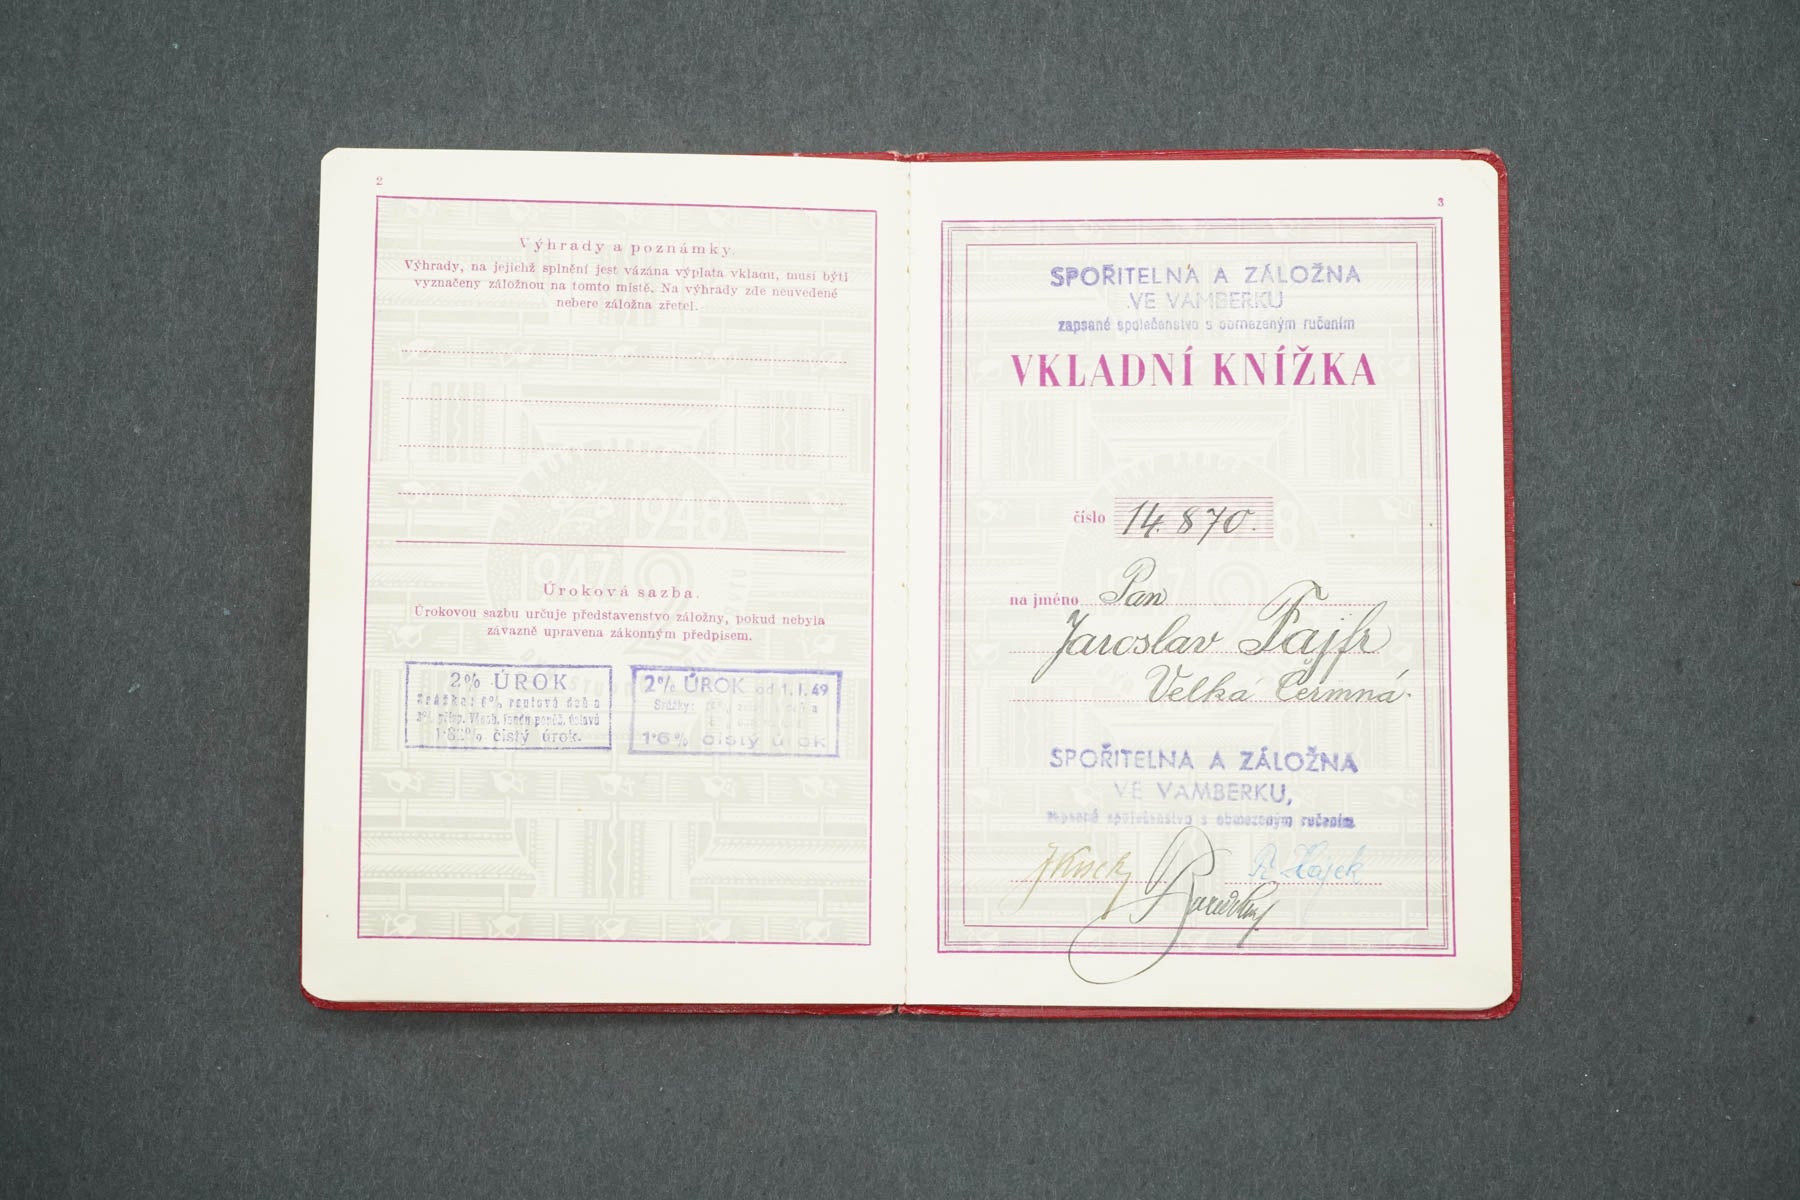 2
Výhrady a poznámky.
Výhrady, na jejichž splnění jest vázána výplata vkladu, musí býti
vyznačeny záložnou na tomto místě. Na výhrady zde neuvedené
nebere záložna zřetel.
Úroková sazba.
Úrokovou sazbu určuje představenstvo záložny, pokud nebyla
závazně upravena zákonným předpisem.
2% ÚROK
Srážka: 6%, rentová daň a
3% přísp. Všeob. fondu peněž. ústavů
1·82% čistý úrok.
2% ÚROK od 1. I. 49
Srážky:
1·6% čistý úrok
3
SPOŘITELNA A ZÁLOŽNA
VE VAMBERKU
zapsané společenstvo s obmezeným ručením
VKLADNÍ KNÍŽKA
číslo 14.870.
na jméno Pan
Jaroslav Fajfr
Velká Čermná.
SPOŘITELNA A ZÁLOŽNA
VE VAMBERKU,
zapsané společenstvo s obmezeným ručením
Hájek
1947 1948